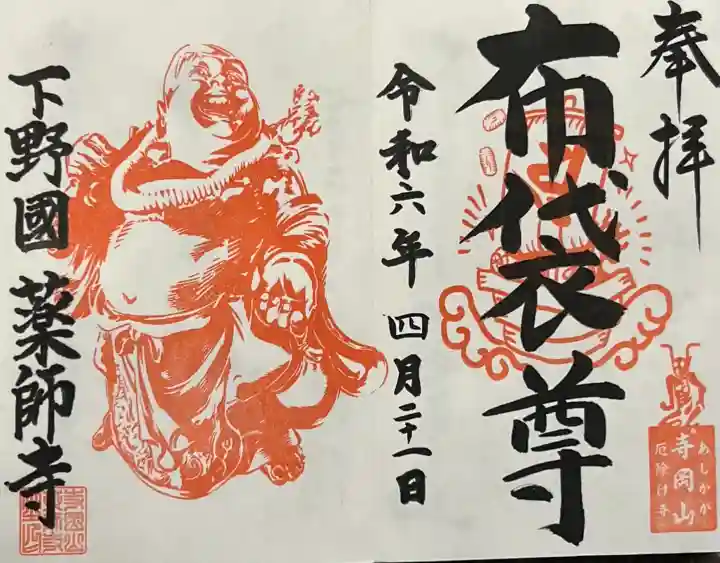 奉拝
布袋尊
令和六年 四月二十一日
下野國 薬師寺
あしかが
寺岡山
厄除け寺